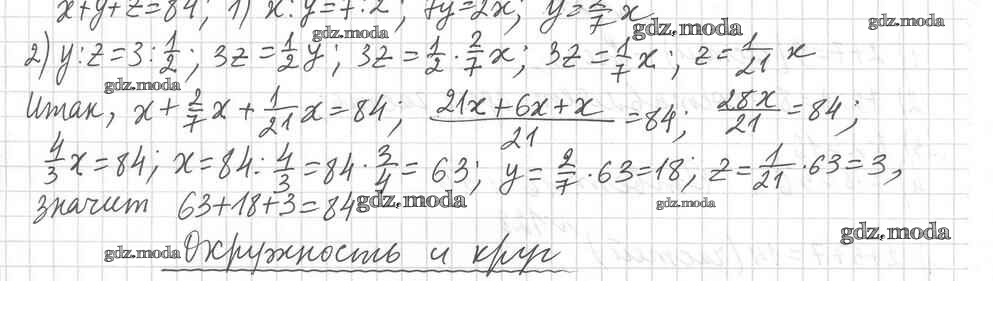 x+y+z=84; 1) x:y=7:2; 7y=2x; y=2/7 x
gdz.moda gdz.moda gdz.moda
2) y:z=3:1/2; 3z=1/2 y; 3z=1/2·2/7 x; 3z=1/7 x; z=1/21 x
gdz.moda
Итак, x+2/7 x+1/21 x=84; (21x+6x+x)/21=84; 28x/21=84;
4/3 x=84; x=84:4/3=84·3/4=63; y=2/7·63=18; z=1/21·63=3,
значит 63+18+3=84
gdz.moda gdz.moda
gdz.moda Окружность и круг gdz.moda